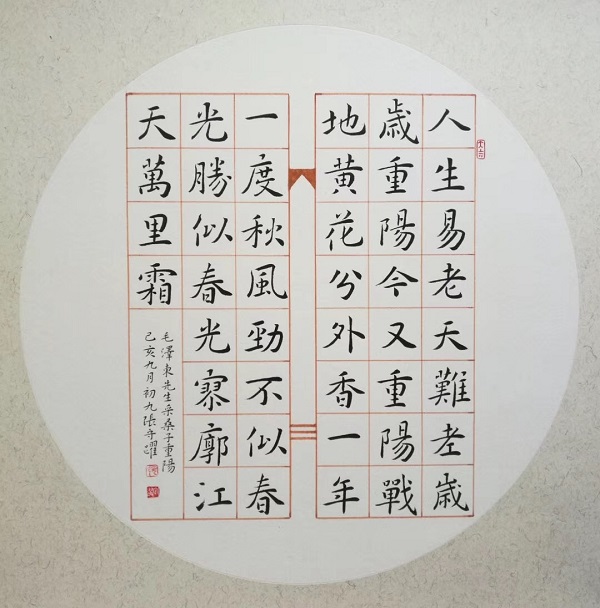 人生易老天難老歲
歲重陽今又重陽戰
地黄花分外香一年
一度秋風勁不似春
光勝似春光寥廓江
天萬里霜
毛澤東先生采桑子重陽
己亥九月初九張守躍